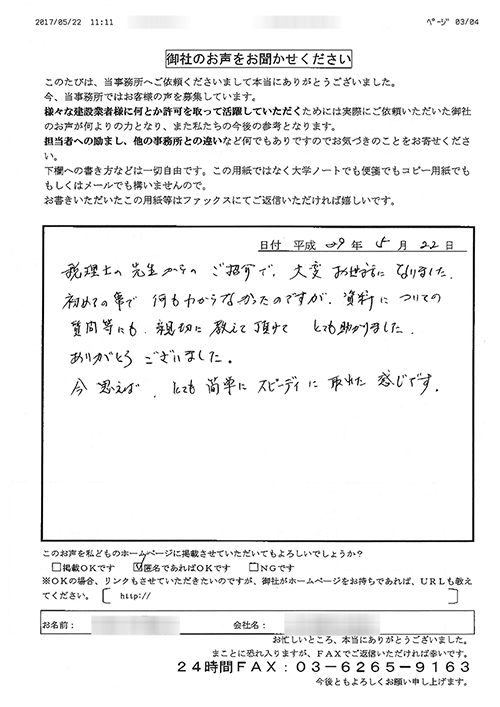 2017/05/22 11:11 ﾍﾟｰｼﾞ 03/04
御社のお声をお聞かせください
このたびは、当事務所へご依頼くださいまして本当にありがとうございました。
今、当事務所ではお客様の声を募集しています。
様々な建設業者様に何とか許可を取って活躍していただくためには実際にご依頼いただいた御社
のお声が何よりの力となり、また私たちの今後の参考となります。
担当者への励まし、他の事務所との違いなど何でもありですのでお気づきのことをお寄せくださ
い。
下欄への書き方などは一切自由です。この用紙ではなく大学ノートでも便箋でもコピー用紙でも
もしくはメールでも構いませんので。
お書きいただいたこの用紙等はファックスにてご返信いただければ嬉しいです。
日付 平成 29 年 5 月 22 日
税理士の先生からのご紹介で、大変お世話になりました。
初めての事で何もわからなかったのですが、資料についての
質問等にも、親切に教えて頂けて とても助かりました。
ありがとうございました。
今思えば、とても簡単にスピーディに取れた感じです。
このお声を私どものホームページに掲載させていただいてもよろしいでしょうか?
□掲載OKです ☑匿名であればOKです □NGです
※OKの場合、リンクもさせていただきたいのですが、御社がホームページをお持ちであれば、URLも教え
てください。[ http:// ]
お名前: 会社名:
お忙しいところ、本当にありがとうございました。
まことに恐れ入りますが、FAXでご返信いただければ幸いです。
24時間FAX:03-6265-9163
今後ともよろしくお願い申し上げます。